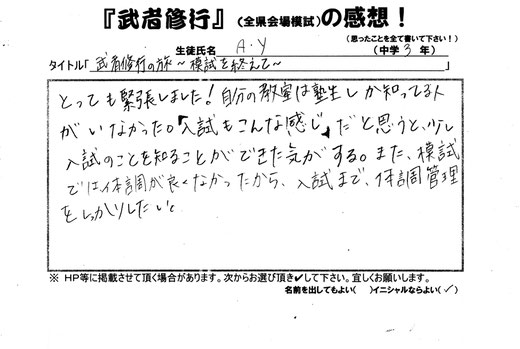 『武者修行』(全県会場模試)の感想！
(思ったことを全て書いて下さい！)
生徒氏名 A.Y (中学 3 年)
タイトル「 武者修行の旅 ～模試を終えて～ 」
とっても緊張しました！自分の教室は塾生しか知ってる人
がいなかった。「入試もこんな感じ」だと思うと、少し
入試のことを知ることができた気がする。また、模試
では体調が良くなかったから、入試まで、体調管理
をしっかりしたい。
※ HP等に掲載させて頂く場合があります。次からお選び頂き✓して下さい。宜しくお願いします。
名前を出してもよい( )イニシャルならよい(✓)